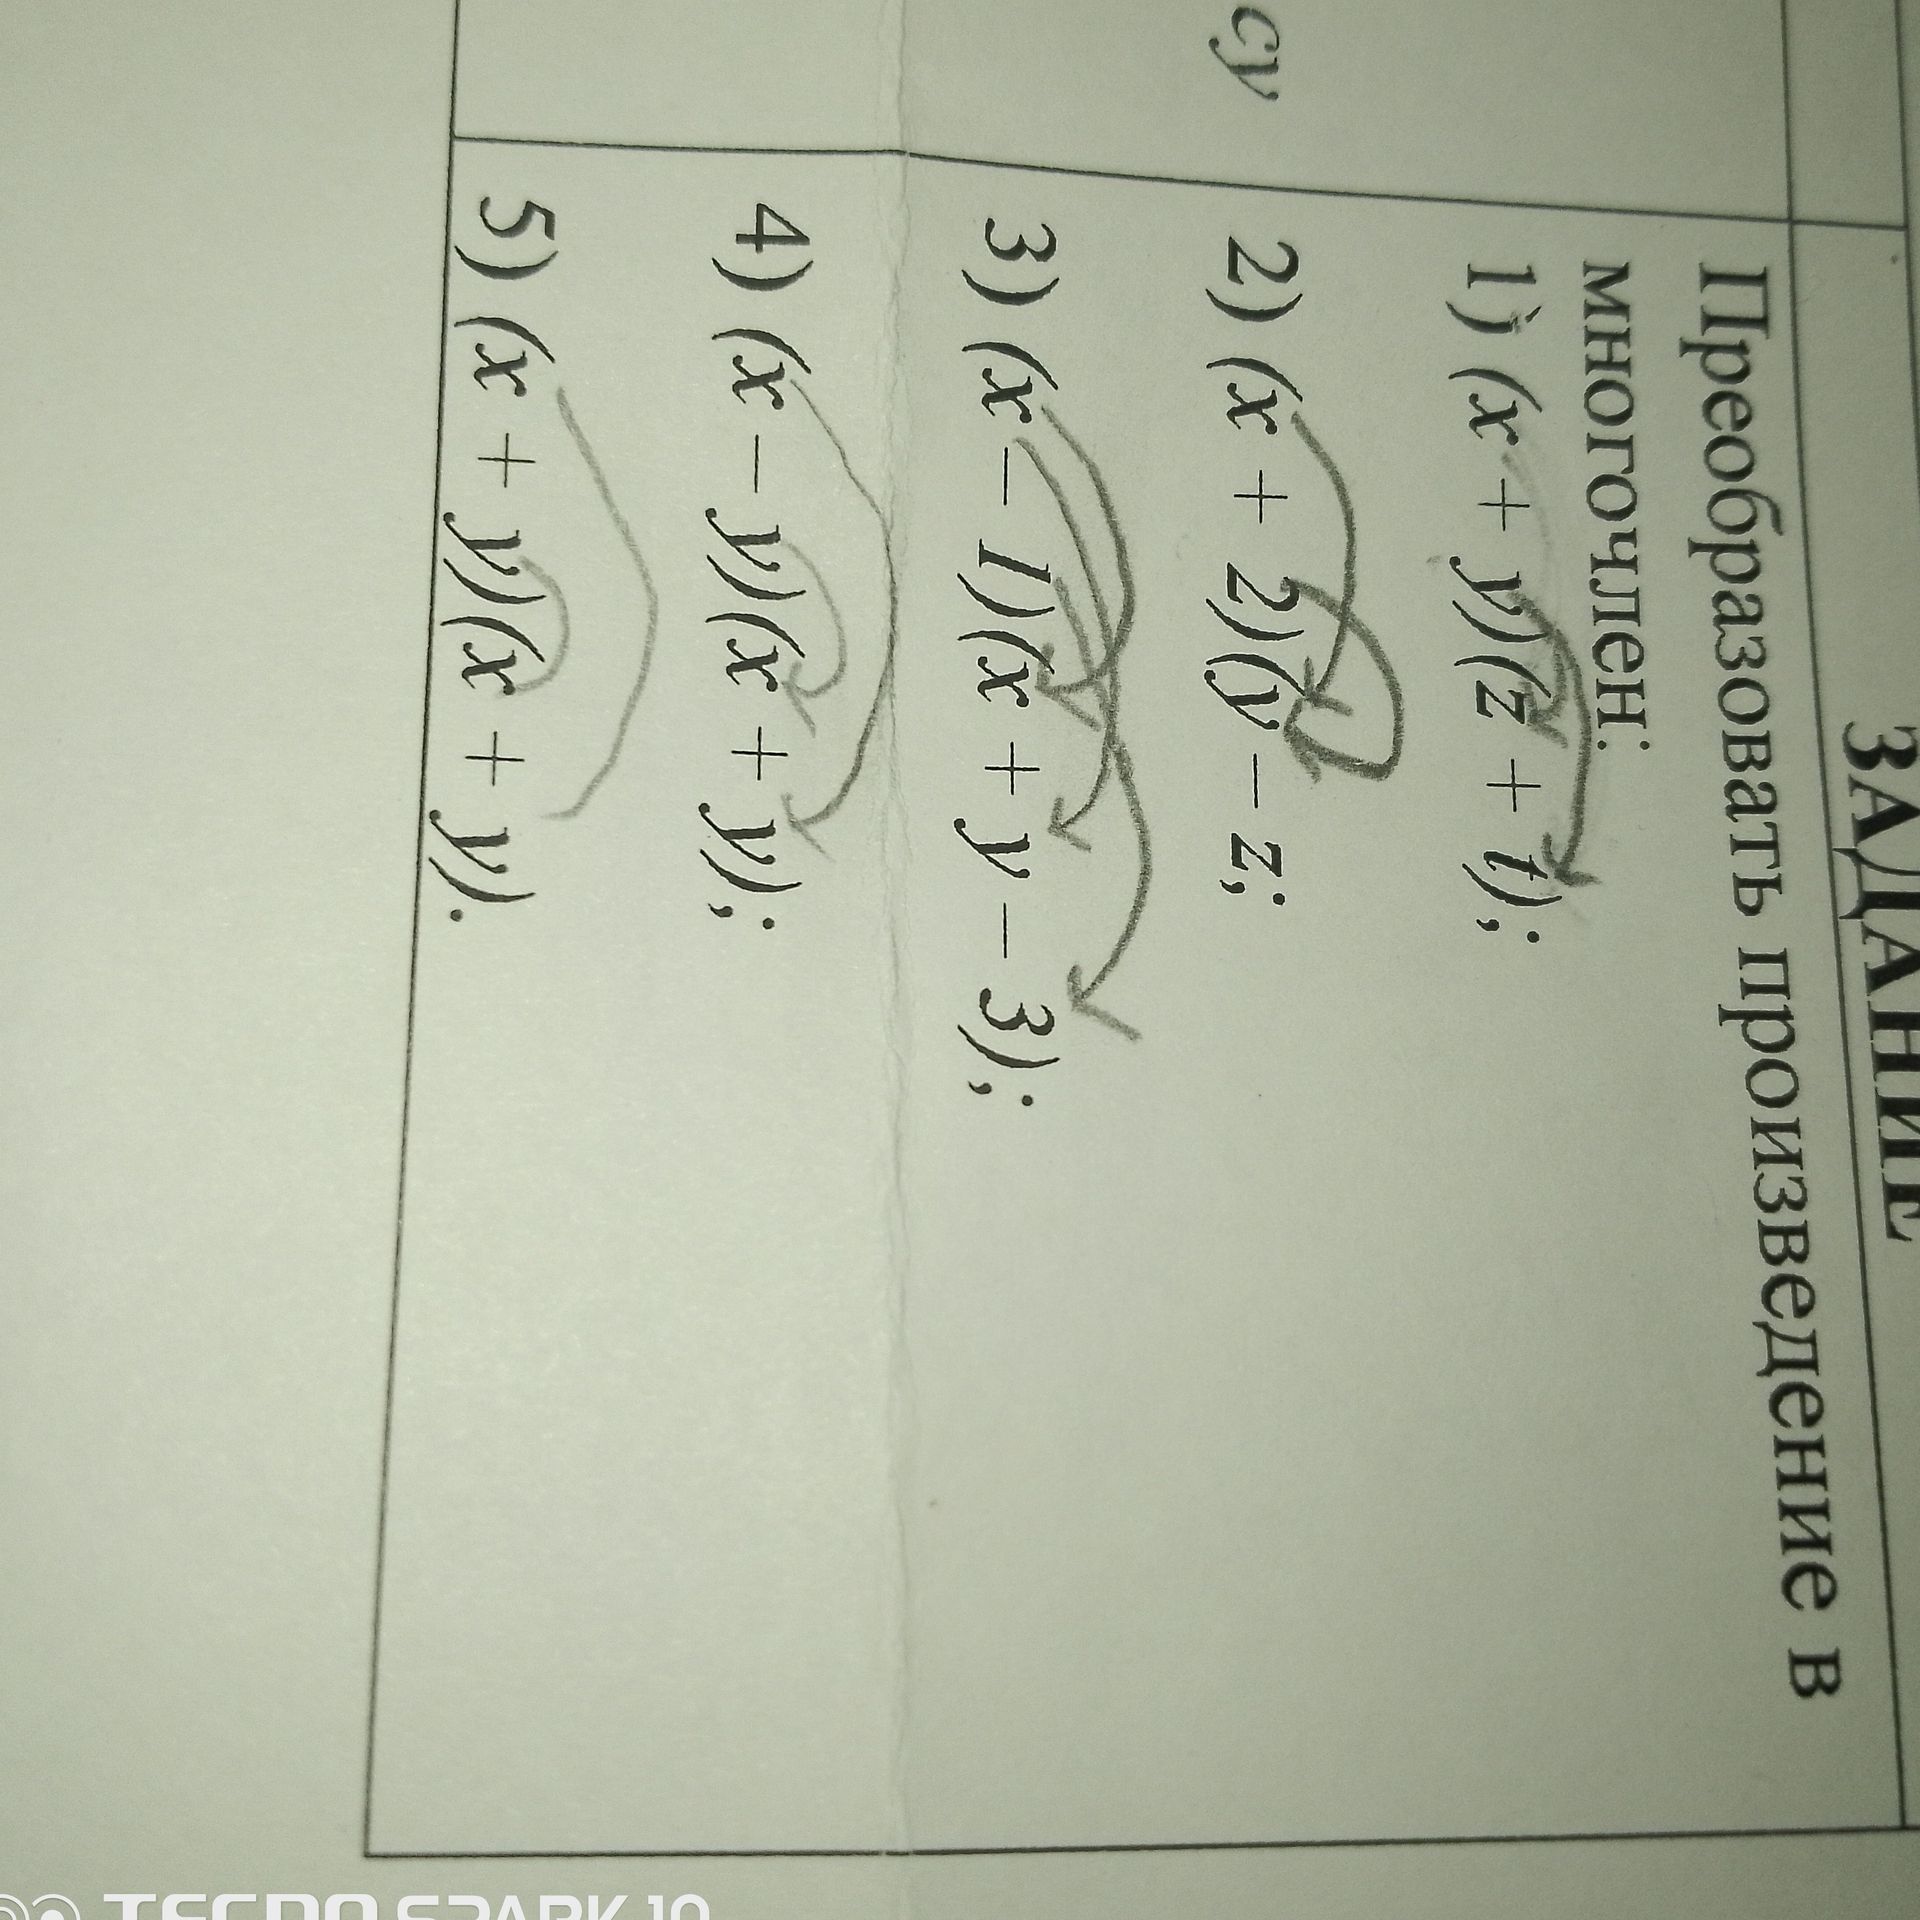 ЗАДАНИЕ
Преобразовать произведение в
многочлен:
1) (x + y)(z + t);
су
2) (x + 2)(y − z;
3) (x − 1)(x + y − 3);
4) (x − y)(x + y);
5) (x + y)(x + y).
TECNO SPARK 10